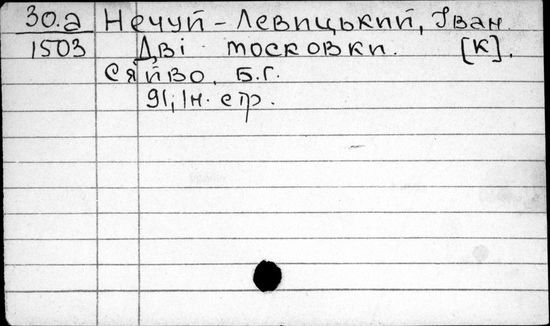 30.а Нечуй-Левицький, Іван
1503 Дві московки. [К].
Сяйво. Б.Г.
91, 1н. стр.